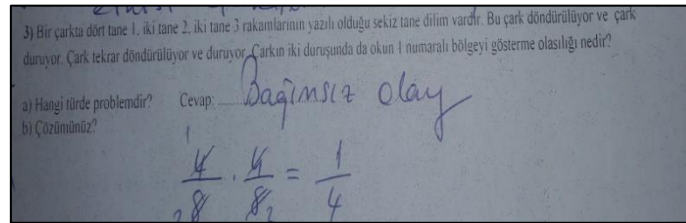 3) Bir çarkta dört tane 1, iki tane 2, iki tane 3 rakamlarının yazılı olduğu sekiz tane dilim vardır. Bu çark döndürülüyor ve çark
duruyor. Çark tekrar döndürülüyor ve duruyor. Çarkın iki duruşunda da okun 1 numaralı bölgeyi gösterme olasılığı nedir?
a) Hangi türde problemdir? Cevap: Bağımsız olay
b) Çözümünüz?
1
4/8 . 4/8 = 1/4
2 2